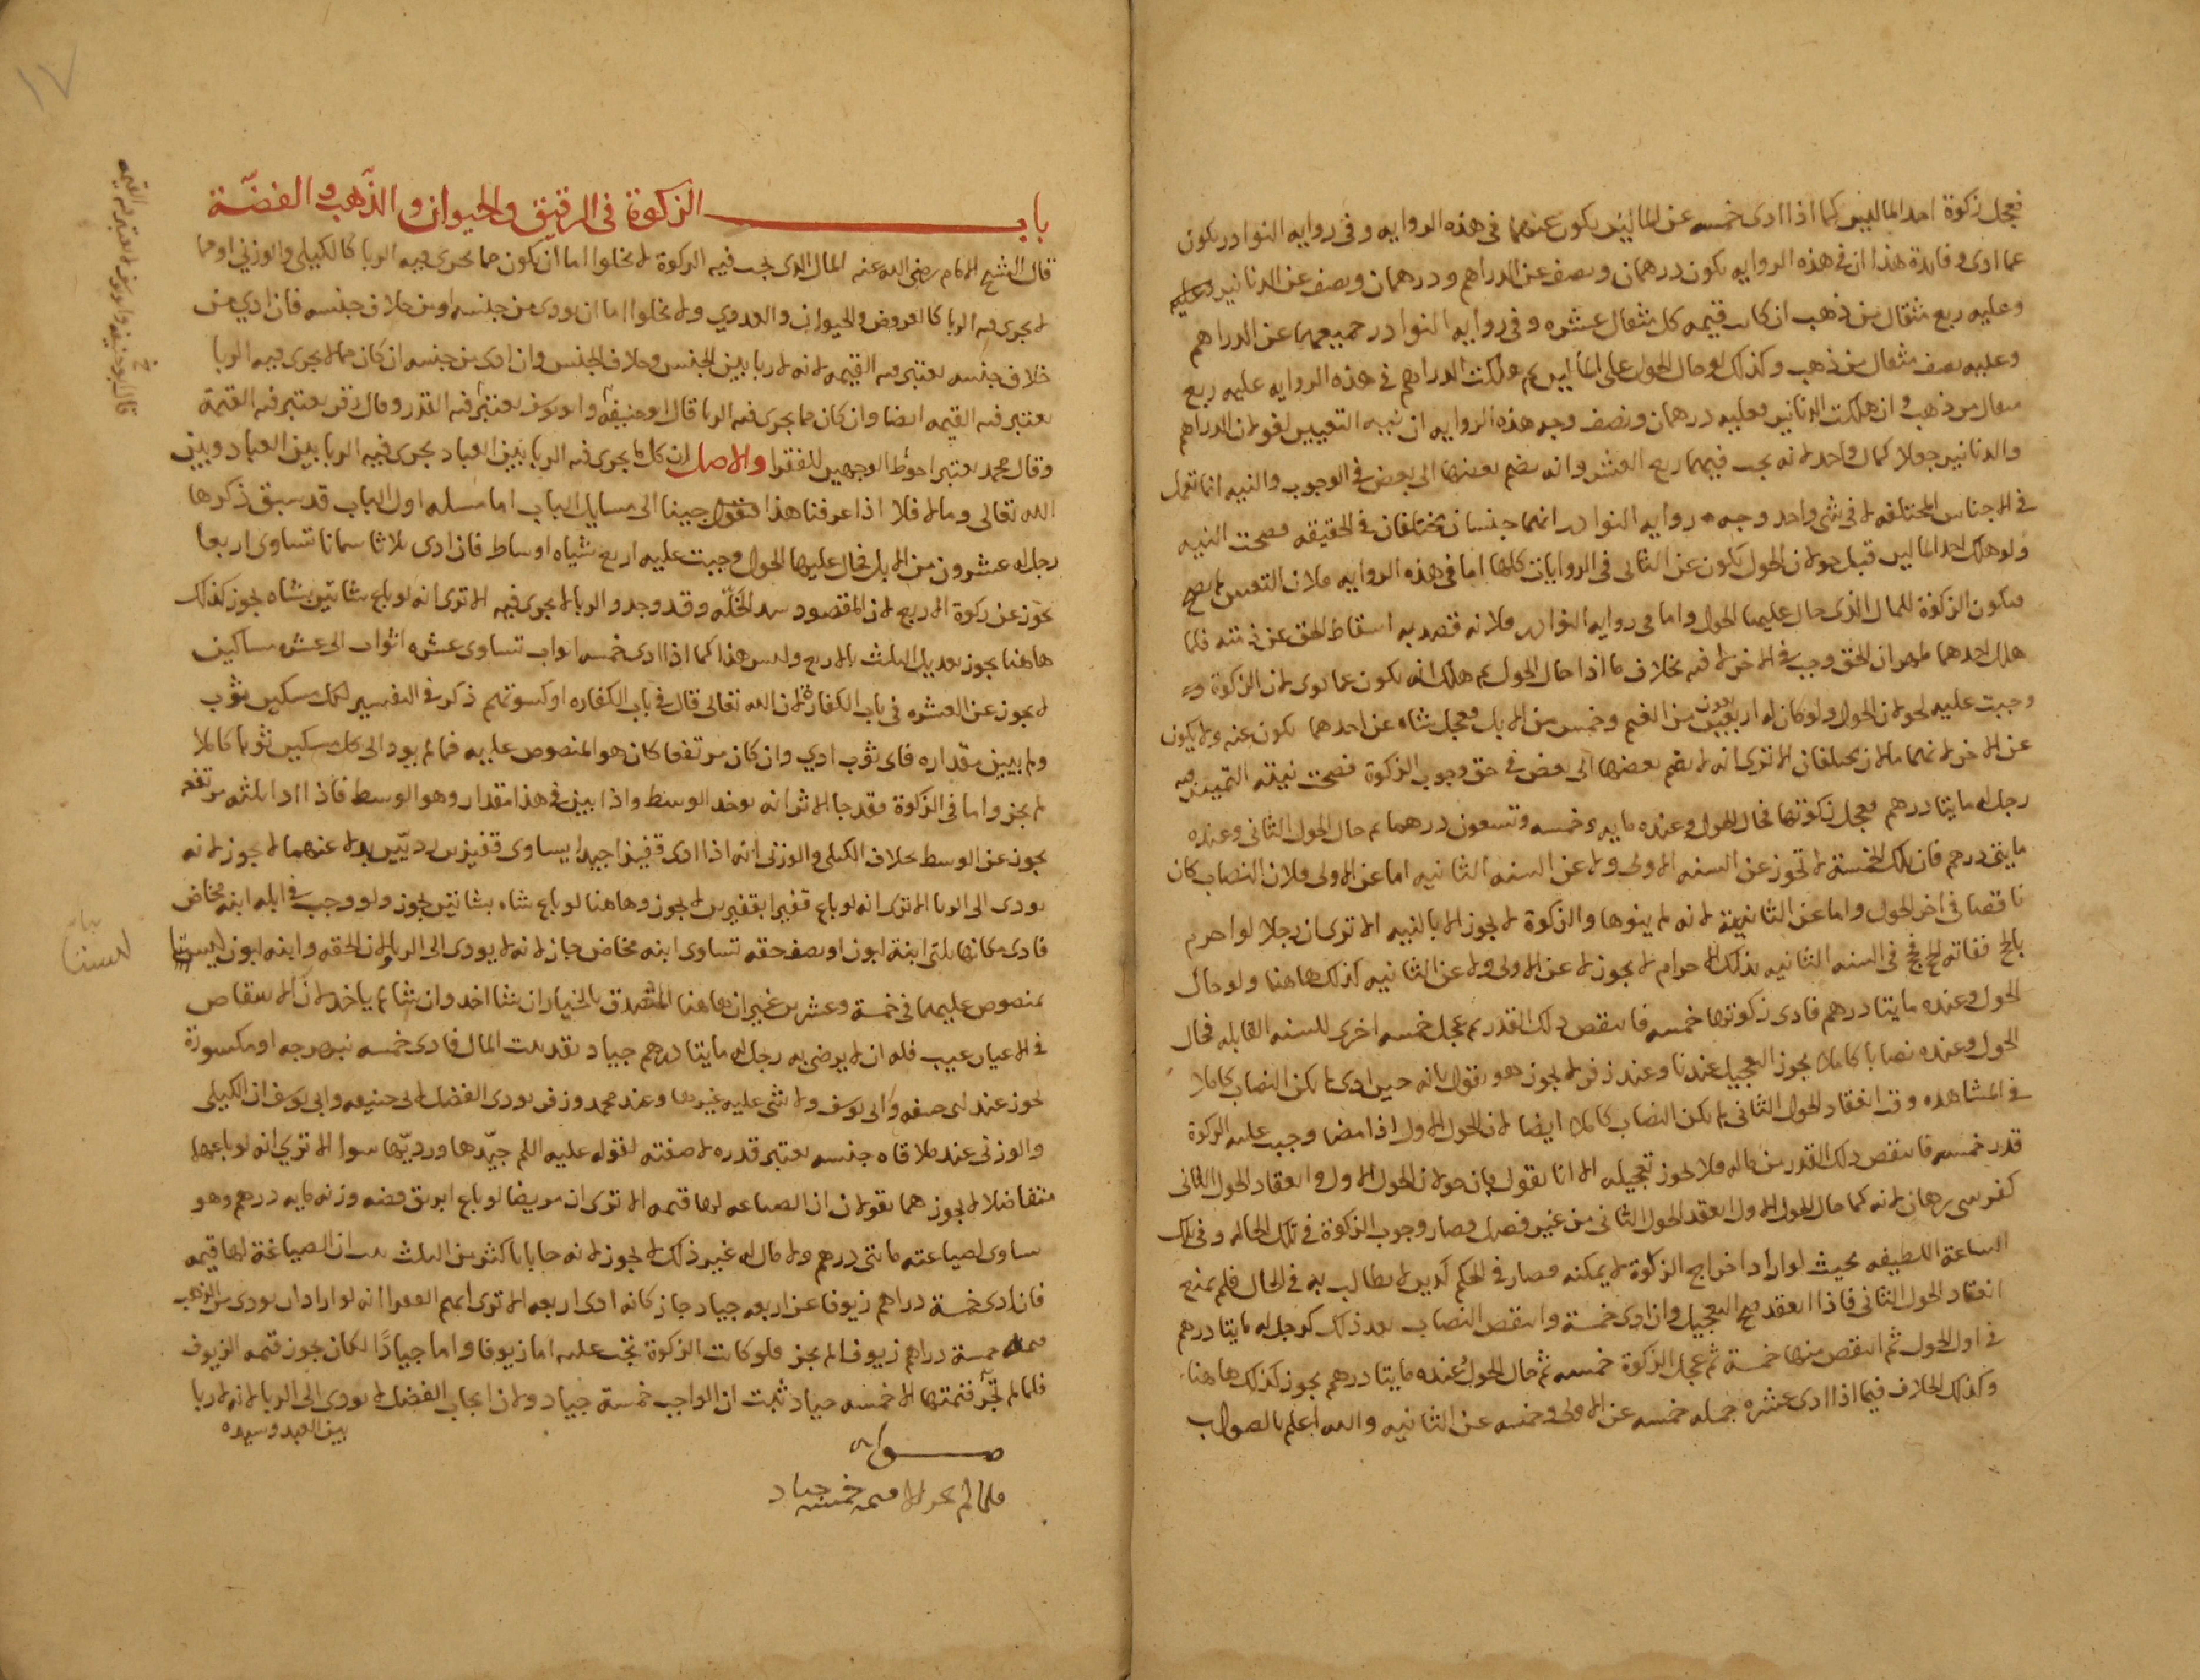 فعجل زكوة احد المالين كما اذا ادى خمسه عن المالين يكون عنهما فى هذه الروايه وفى روايه النوادر يكون
عما ادى وفايدة هذا ان فى هذه الروايه يكون درهمان ونصف عن الدراهم ودرهمان ونصف عن الدنانير
وعليه ربع مثقال من ذهب ان كانت قيمه كل مثقال عشره وفى روايه النوادر جميعهما عن الدراهم
وعليه نصف مثقال من ذهب وكذلك لو حال الحول على المالين ثم هلكت الدراهم فى هذه الروايه عليه ربع
مثقال من ذهب وان هلكت الدنانير فعليه درهمان ونصف وجه هذه الروايه ان نيه التعيين لغو لان الدراهم
والدنانير جعلا كمال واحد لانه يجب فيهما ربع العشر وانه يضم بعضها الى بعض فى الوجوب والنيه انما تعمل
فى الاجناس المختلفه لا فى شى واحد وجه روايه النوادر انهما جنسان مختلفان فى الحقيقه فصحت النيه
ولو هلك احد المالين قبل حولان الحول يكون عن الثانى فى الروايات كلها اما فى هذه الروايه فلان التعيين لم يصح
فيكون الزكوة للمال الذى حال عليها الحول واما فى روايه النوادر فلانه قصد به اسقاط الحق عن ذمته فلما
هلك احدهما ظهر ان الحق وجب فى الاخر لا فيه بخلاف ما اذا حال الحول ثم هلك انه يكون عما نوى لان الزكوة
وجبت عليه لحولان الحول ولو كان له اربعين من الغنم وخمس من الابل فعجل شاه عن احدهما يكون عنه ولا يكون
عن الاخر لانهما مالان مختلفان الا ترى انه لا يضم بعضها الى بعض فى حق وجوب الزكوة فصحت نيته التمييز فيه
رجل له مايتا درهم فعجل زكوتها فحال الحول وعنده مايه وخمسه وتسعون درهما ثم حال الحول الثانى وعنده
مايتى درهم فان تلك الخمسة لا تجوز عن السنه الاولى ولا عن السنه الثانيه اما عن الاولى فلان النصاب كان
ناقصا فى اخر الحول واما عن الثانية لانه لم ينوها والزكوة لا يجوز الا بالنيه الا ترى ان رجلا لو احرم
بالحج ففاته الحج فحج فى السنه الثانيه بذلك الاحرام لا يجوز لا عن الاولى ولا عن الثانيه كذلك هاهنا ولو حال
الحول وعنده مايتا درهم فادى زكوتها خمسه فانتقص ذلك القدر ثم عجل خمسه اخرى للسنه القابله فحال
الحول وعنده نصابا كاملا يجوز التعجيل عندنا وعند زفر لا يجوز هو يقول بانه حين ادى لم يكن النصاب كاملا
فى المشاهده وقت انعقاد الحول الثانى لم يكن النصاب كاملا ايضا لان الحول الاول اذا مضا وجب عليه الزكوة
قدر خمسه فانتقص ذلك القدر من ماله فلا يجوز تعجيله الا انا نقول بان حولان الحول الاول وانعقاد الحول الثانى
كفرسى رهان لانه كما حال الحول الاول انعقد الحول الثانى من غير فصل فصار وجوب الزكوة فى تلك الحاله وفى تلك
الساعة اللطيفه بحيث لو اراد اخراج الزكوة لا يمكنه فصار فى الحكم كدين لا يطالب به فى الحال فلم يمنع
انعقاد الحول الثانى فاذا انعقد صح التعجيل وان ادى خمسة وانتقص النصاب بعد ذلك كرجل له مايتا درهم
فى اول الحول ثم انتقص منها خمسة ثم عجل الزكوة خمسه ثم حال الحول وعنده مايتا درهم يجوز كذلك هاهنا
وكذلك الخلاف فيما اذا ادى عشره جمله خمسه عن الاولى وخمسه عن الثانيه والله اعلم بالصواب
١٧
باب الزكوة فى الرقيق والحيوان والذهب والفضة
قال الشيخ الامام رضى الله عنه المال الذى يجب فيه الزكوة لا يخلوا اما ان يكون مما يجرى فيه الربا كالكيلى والوزنى او مما
لا يجرى فيه الربا كالعروض والحيوان والعددي ولا يخلوا اما ان يودى من جنسه او من خلاف جنسه فان ادي من
خلاف جنسه يعتبر فيه القيمه لانه لا ربا بين الجنس وخلاف الجنس وان ادى من جنسه ان كان مما لا يجرى فيه الربا
يعتبر فيه القيمه ايضا وان كان مما يجرى فيه الربا قال ابو حنيفه وابو يوسف يعتبر فيه القدر وقال زفر يعتبر فيه القيمة
وقال محمد يعتبر احوط الوجهين للفقرا والاصل ان كل ما يجرى فيه الربا بين العباد يجرى فيه الربا بين العباد وبين
الله تعالى وما لا فلا اذا عرفنا هذا فنقول جينا الى مسايل الباب اما مسله اول الباب قد سبق ذكرها
رجل له عشرون من الابل فحال عليها الحول وجبت عليه اربع شياه اوساط فان ادى ثلاثا سمانا تساوى اربعا
يجوز عن زكوة الاربع لان المقصود سد الخلة وقد وجد والربا لا يجرى فيه الا ترى انه لو باع شاتين بشاه يجوز كذلك
هاهنا يجوز تعديل الثلث بالاربع وليس هذا كما اذا ادى خمسه اثواب تساوى عشره اثواب الى عشره مساكين
لا يجوز عن العشره فى باب الكفارة لان الله تعالى قال فى باب الكفاره او كسوتهم ذكر فى التفسير لكل مسكين ثوب
ولم يبين مقداره فاى ثوب ادي وان كان مرتفعا كان هو المنصوص عليه فما لم يود الى كل مسكين ثوبا كاملا
لم يجز واما فى الزكوة فقد جا الاثر انه يوخد الوسط واذا بين فى هذا مقدار وهو الوسط فاذا ادا ثلثه مرتفعه
يجوز عن الوسط بخلاف الكيلى والوزنى انه اذا ادى قفيزا جيدا يساوى قفيزين رديّين بدلا عنهما لا يجوز لانه
يودى الى الربا الا ترى انه لو باع قفيزا بقفيزين لا يجوز وهاهنا لو باع شاه بشاتين يجوز ولو وجب فى ابله ابنه مخاض
فادى مكانها ثلثى ابنة لبون او نصف حقه تساوى ابنه مخاض جاز لانه لا يودى الى الربا لان الحقه وابنه لبون ليستا
بمنصوص عليهما فى خمسة وعشرين غير ان هاهنا المتصدق بالخيار ان شا اخد وان شا لم ياخد لان الانتقاص
فى الاعيان عيب فله ان لا يرضى به رجل له مايتا درهم جياد نقد بيت المال فادى خمسه نبهرجه او مكسورة
يجوز عند ابى حنيفه وابى يوسف ولا شى عليه غيرها وعند محمد وزفر يودى الفضل لابى حنيفه وابى يوسف ان الكيلى
والوزنى عند ملاقاه جنسه يعتبر قدره لا صفته لقوله عليه السلم جيّدها ورديّها سوا الا ترى انه لو باعها
متفاضلا لا يجوز هما يقولان ان الصياعه لها قيمه الا ترى ان مريضا لو باع ابريق فضه وزنه مايه درهم وهو
يساوى لصياعته مايتى درهم ولا مال له غير ذلك لا يجوز لانه حابا باكثر من الثلث ثبت ان الصياغة لها قيمه
فان ادى خمسة دراهم زيوفا عن اربعه جياد جاز كانه ادى اربعه الا ترى انه لو اراد ان يودى من الذهب
قيمة خمسة دراهم زيوفا لم يجز فلو كانت الزكوة تجب عليه اما زيوفا واما جيادًا لكان يجوز قيمه الزيوف
فلما لم تجز قيمتها الا خمسه جياد ثبت ان الواجب خمسة جياد ولان ايجاب الفضل لا يودى الى الربا لانه لا ربا
بين العبد وسيده
صوابه
فلما لم يجز الا قيمه خمسه جياد
قال ابو حنيفه وابو يوسف لا يعتبر فيه القيمه
بيانه
ليستا